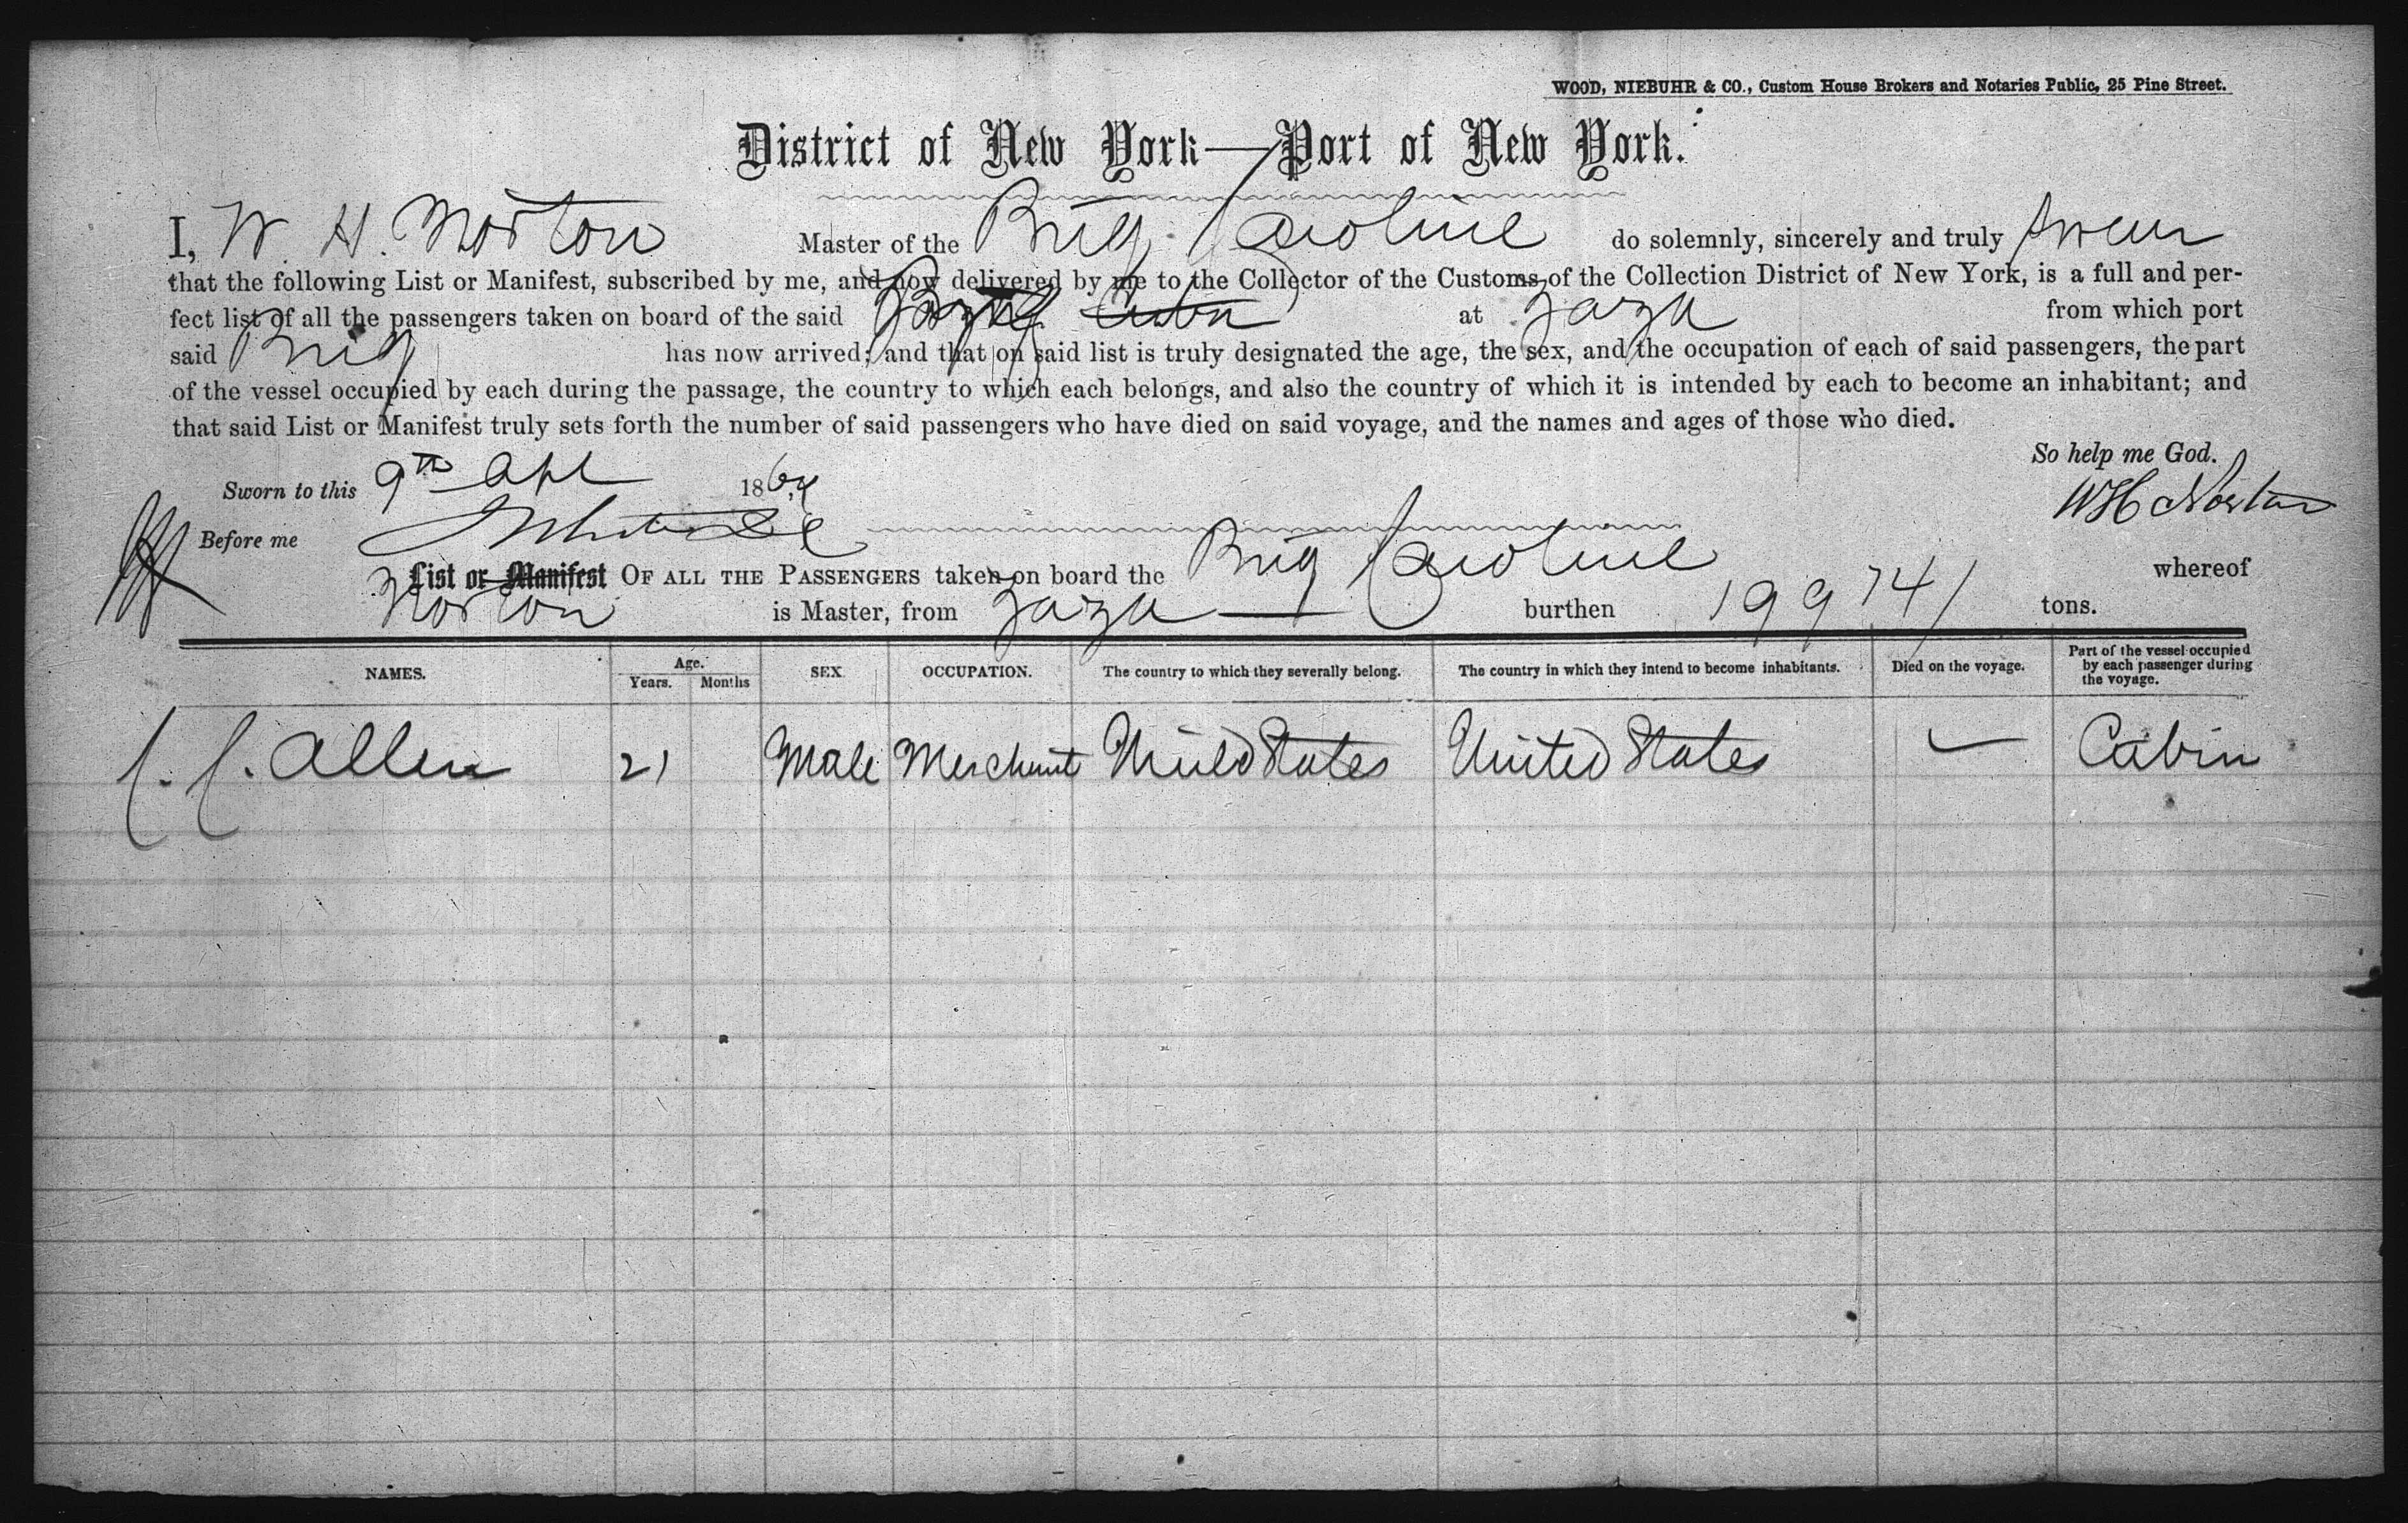 WOOD, NIEBUHR & CO., Custom House Brokers and Notaries Public, 25 Pine Street.
District of New York—Port of New York.
I, W. H. Norton Master of the Brig Caroline do solemnly, sincerely and truly swear
that the following List or Manifest, subscribed by me, and now delivered by me to the Collector of the Customs of the Collection District of New York, is a full and per-
fect list of all the passengers taken on board of the said Brig at Zaza from which port
said Brig has now arrived; and that on said list is truly designated the age, the sex, and the occupation of each of said passengers, the part
of the vessel occupied by each during the passage, the country to which each belongs, and also the country of which it is intended by each to become an inhabitant; and
that said List or Manifest truly sets forth the number of said passengers who have died on said voyage, and the names and ages of those who died.
So help me God.
Sworn to this 9th Apl 1864
W H Norton
Before me
List or Manifest OF ALL THE PASSENGERS taken on board the Brig Caroline whereof
Norton is Master, from Zaza burthen 199 74/ tons.
NAMES. Age. Years. Months SEX OCCUPATION. The country to which they severally belong. The country in which they intend to become inhabitants. Died on the voyage. Part of the vessel occupied by each passenger during the voyage.
C. C. Allen 21 Male Merchant United States United States — Cabin